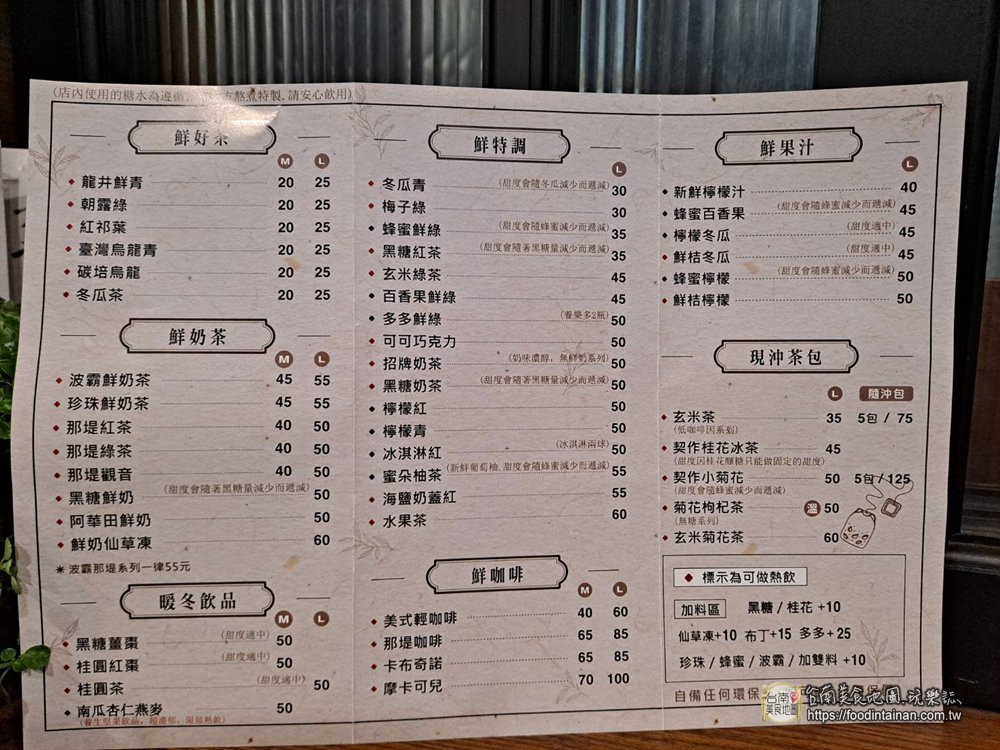 (店內使用的糖水為遵循 方熬煮特製.請安心飲用)
鮮好茶
M L
龍井鮮青 20 25
朝露綠 20 25
紅祁葉 20 25
臺灣烏龍青 20 25
碳培烏龍 20 25
冬瓜茶 20 25
鮮奶茶
M L
波霸鮮奶茶 45 55
珍珠鮮奶茶 45 55
那堤紅茶 40 50
那堤綠茶 40 50
那堤觀音 40 50
黑糖鮮奶 (甜度會隨著黑糖量減少而遞減) 50
阿華田鮮奶 50
鮮奶仙草凍 60
✷波霸那堤系列一律55元
暖冬飲品
M L
黑糖薑棗 (甜度適中) 50
桂圓紅棗 (甜度適中) 50
桂圓茶 (甜度適中) 50
南瓜杏仁燕麥 50
(養生堅果飲品，超濃郁，限做熱飲)
鮮特調
L
冬瓜青 (甜度會隨冬瓜減少而遞減) 30
梅子綠 30
蜂蜜鮮綠 (甜度會隨蜂蜜減少而遞減) 35
黑糖紅茶 (甜度會隨著黑糖量減少而遞減) 35
玄米綠茶 45
百香果鮮綠 45
多多鮮綠 (養樂多2瓶) 50
可可巧克力 50
招牌奶茶 (奶味濃醇，無鮮奶系列) 50
黑糖奶茶 (甜度會隨著黑糖量減少而遞減) 50
檸檬紅 50
檸檬青 50
冰淇淋紅 (冰淇淋兩球) 50
蜜朵柚茶 (新鮮葡萄柚.甜度會隨蜂蜜減少而遞減) 55
海鹽奶蓋紅 55
水果茶 60
鮮咖啡
M L
美式輕咖啡 40 60
那堤咖啡 65 85
卡布奇諾 65 85
摩卡可兒 70 100
鮮果汁
L
新鮮檸檬汁 40
蜂蜜百香果 (甜度會隨蜂蜜減少而遞減) 45
檸檬冬瓜 (甜度適中) 45
鮮桔冬瓜 (甜度適中) 45
蜂蜜檸檬 (甜度會隨蜂蜜減少而遞減) 50
鮮桔檸檬 50
現沖茶包
L 隨沖包
玄米茶 35 5包 / 75
(低咖啡因系列)
契作桂花冰茶 45
(甜度因桂花釀糖只能做固定的甜度)
契作小菊花 50 5包/125
(甜度會隨蜂蜜減少而遞減)
菊花枸杞茶 溫 50
(無糖系列)
玄米菊花茶 60
標示為可做熱飲
加料區 黑糖/桂花+10
仙草凍+10 布丁+15 多多+25
珍珠/蜂蜜/波霸/加雙料+10
自備任何環保
台南美食地圖 台南美食地圖.玩樂誌
https://foodintainan.com.tw